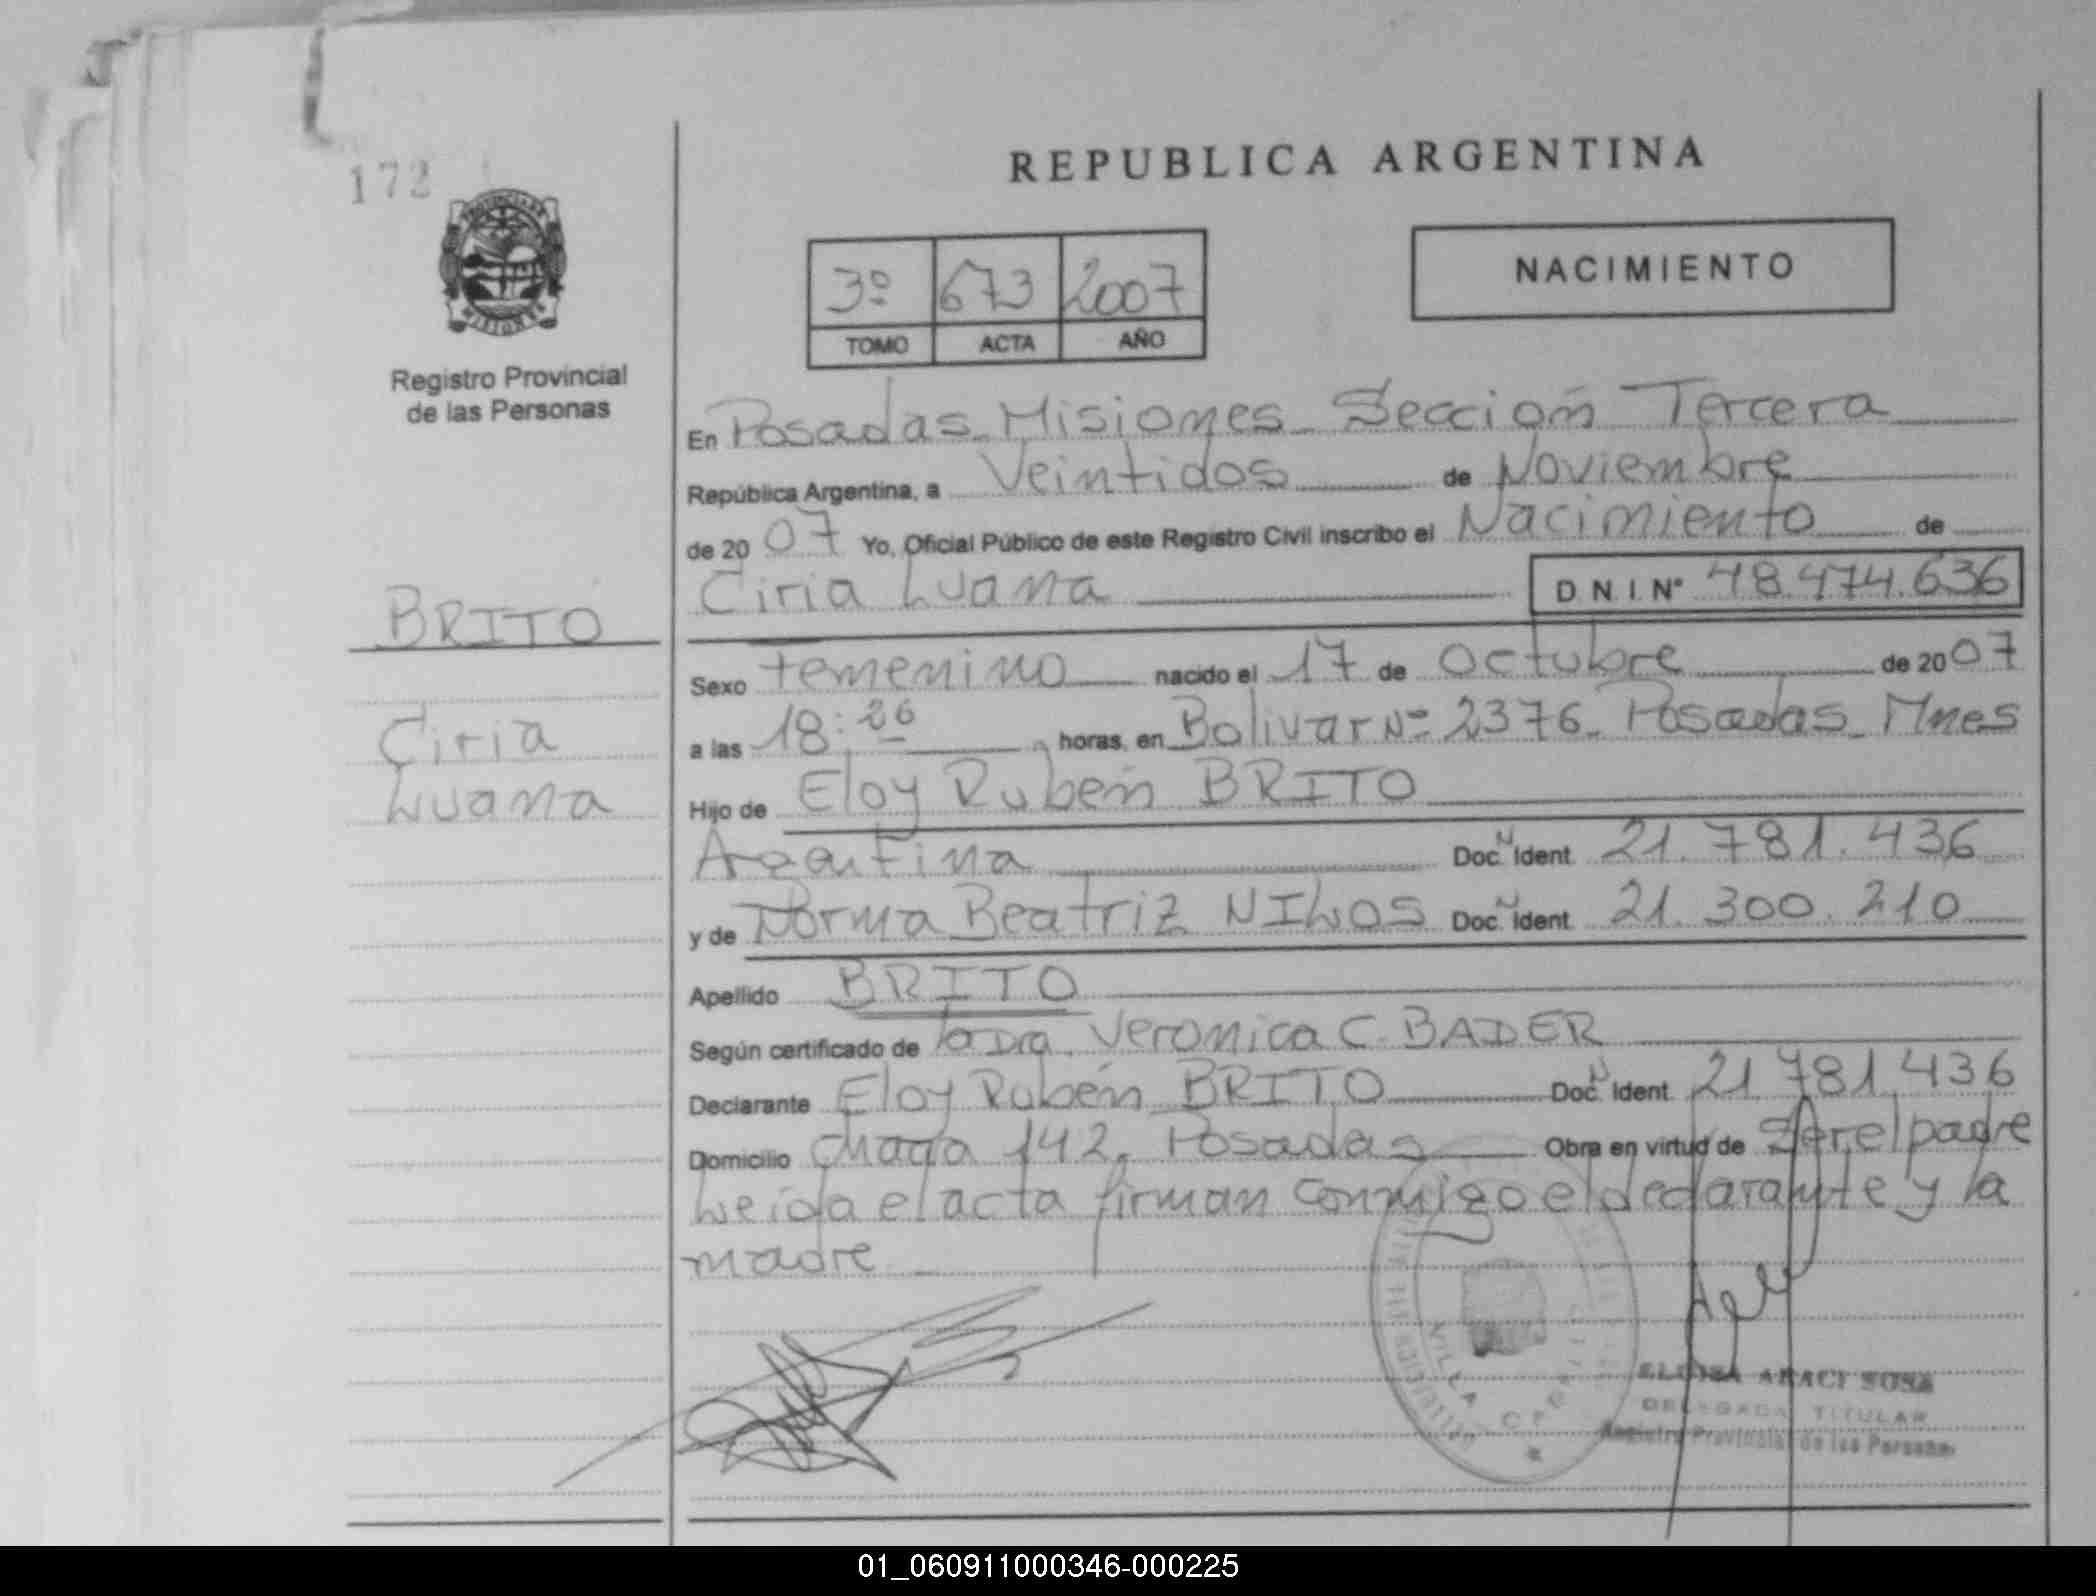 172
PROVINCIA DE
MISIONES
Registro Provincial
de las Personas
BRITO
Ciria
Luana
REPUBLICA ARGENTINA
3º 673 2007
TOMO ACTA AÑO
NACIMIENTO
En Posadas - Misiones - Sección Tercera
República Argentina, a Veintidos de Noviembre
de 20 07 Yo, Oficial Público de este Registro Civil inscribo el Nacimiento de
Ciria Luana D.N.I. Nº 48.474.636
Sexo femenino nacido el 17 de Octubre de 20 07
a las 18:26 horas, en Bolivar Nº 2376 - Posadas - Mnes
Hijo de Eloy Rubén BRITO
Argentina Doc. N Ident. 21.781.436
y de Norma Beatriz Doc. N Ident. 21.300.210
Apellido BRITO
Según certificado de la Dra. Veronica C. BADER
Declarante Eloy Rubén BRITO Doc. N Ident. 21.781.436
Domicilio 142 - Posadas Obra en virtud de Ser el padre
Leida el acta firman conmigo el declarante y la
madre
VILLA
ARACI SOSA
DELEGADA TITULAR
Registro Provincial de las Personas
01_060911000346-000225